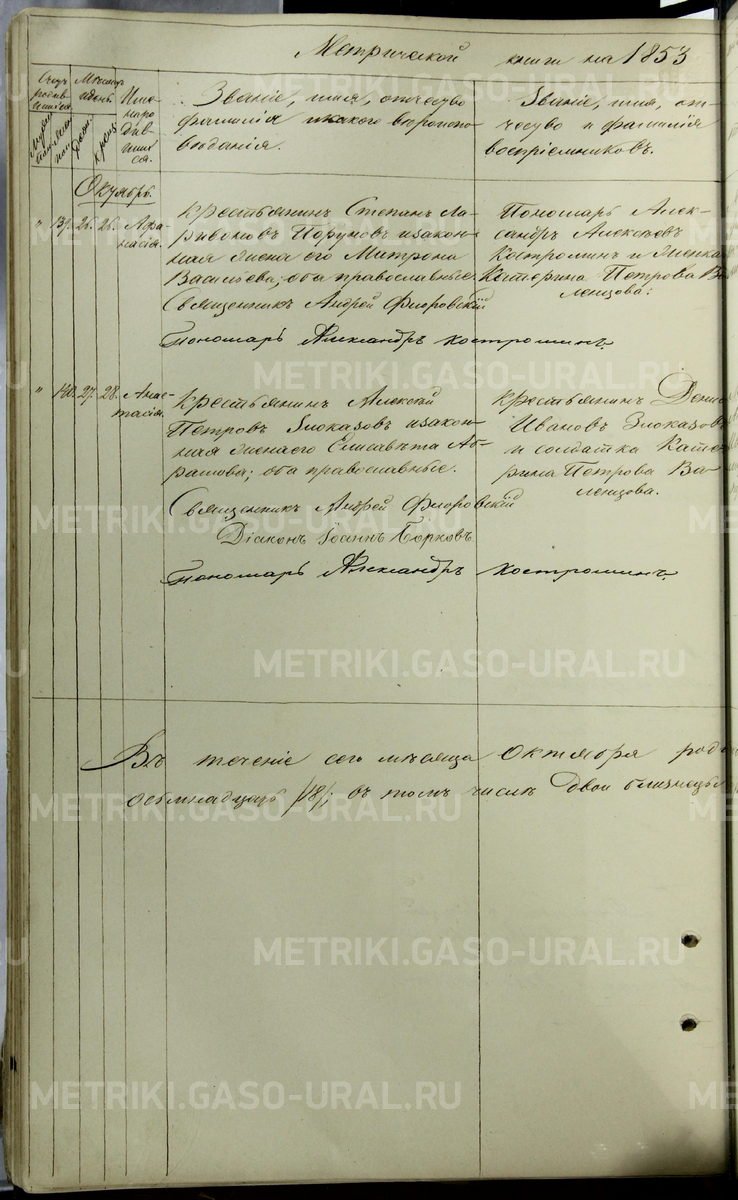 Метрической книги на 1853
Счетъ родившихся.
Мѣсяцъ и день.
Имена родившихся.
Званіе, имя, отчество
фамилія и какого вѣроиспо-
вѣданія.
Званіе, имя, от-
чество и фамилія
воспріемниковъ.
Октябрь.
" 139. 26. 26. Афа-
насія.
Крестьянинъ Степанъ Ла-
ріоновъ и закон-
ная жена его Матрона
Васильева; оба православные.
Пономарь Алек-
сандръ Алексѣевъ
Костроминъ и женка
Катерина Петрова Ва-
ленцова.
Священникъ Андрей Флоровскій
Пономарь Александръ Костроминъ.
" 140. 27. 28. Анас-
тасія.
Крестьянинъ Алексѣй
Петровъ Злоказовъ и закон-
ная жена его Елисавета Аб-
рамова; оба православные.
Крестьянинъ
Ивановъ Злоказовъ
и солдатка Кате-
рина Петрова Ва-
ленцова.
Священникъ Андрей Флоровскій
Діаконъ Іоаннъ Борковъ
Пономарь Александръ Костроминъ.
Въ теченіе сего мѣсяца Октября
осьмнадцать /18/; въ томъ числѣ двои близнецы
METRIKI.GASO-URAL.RU